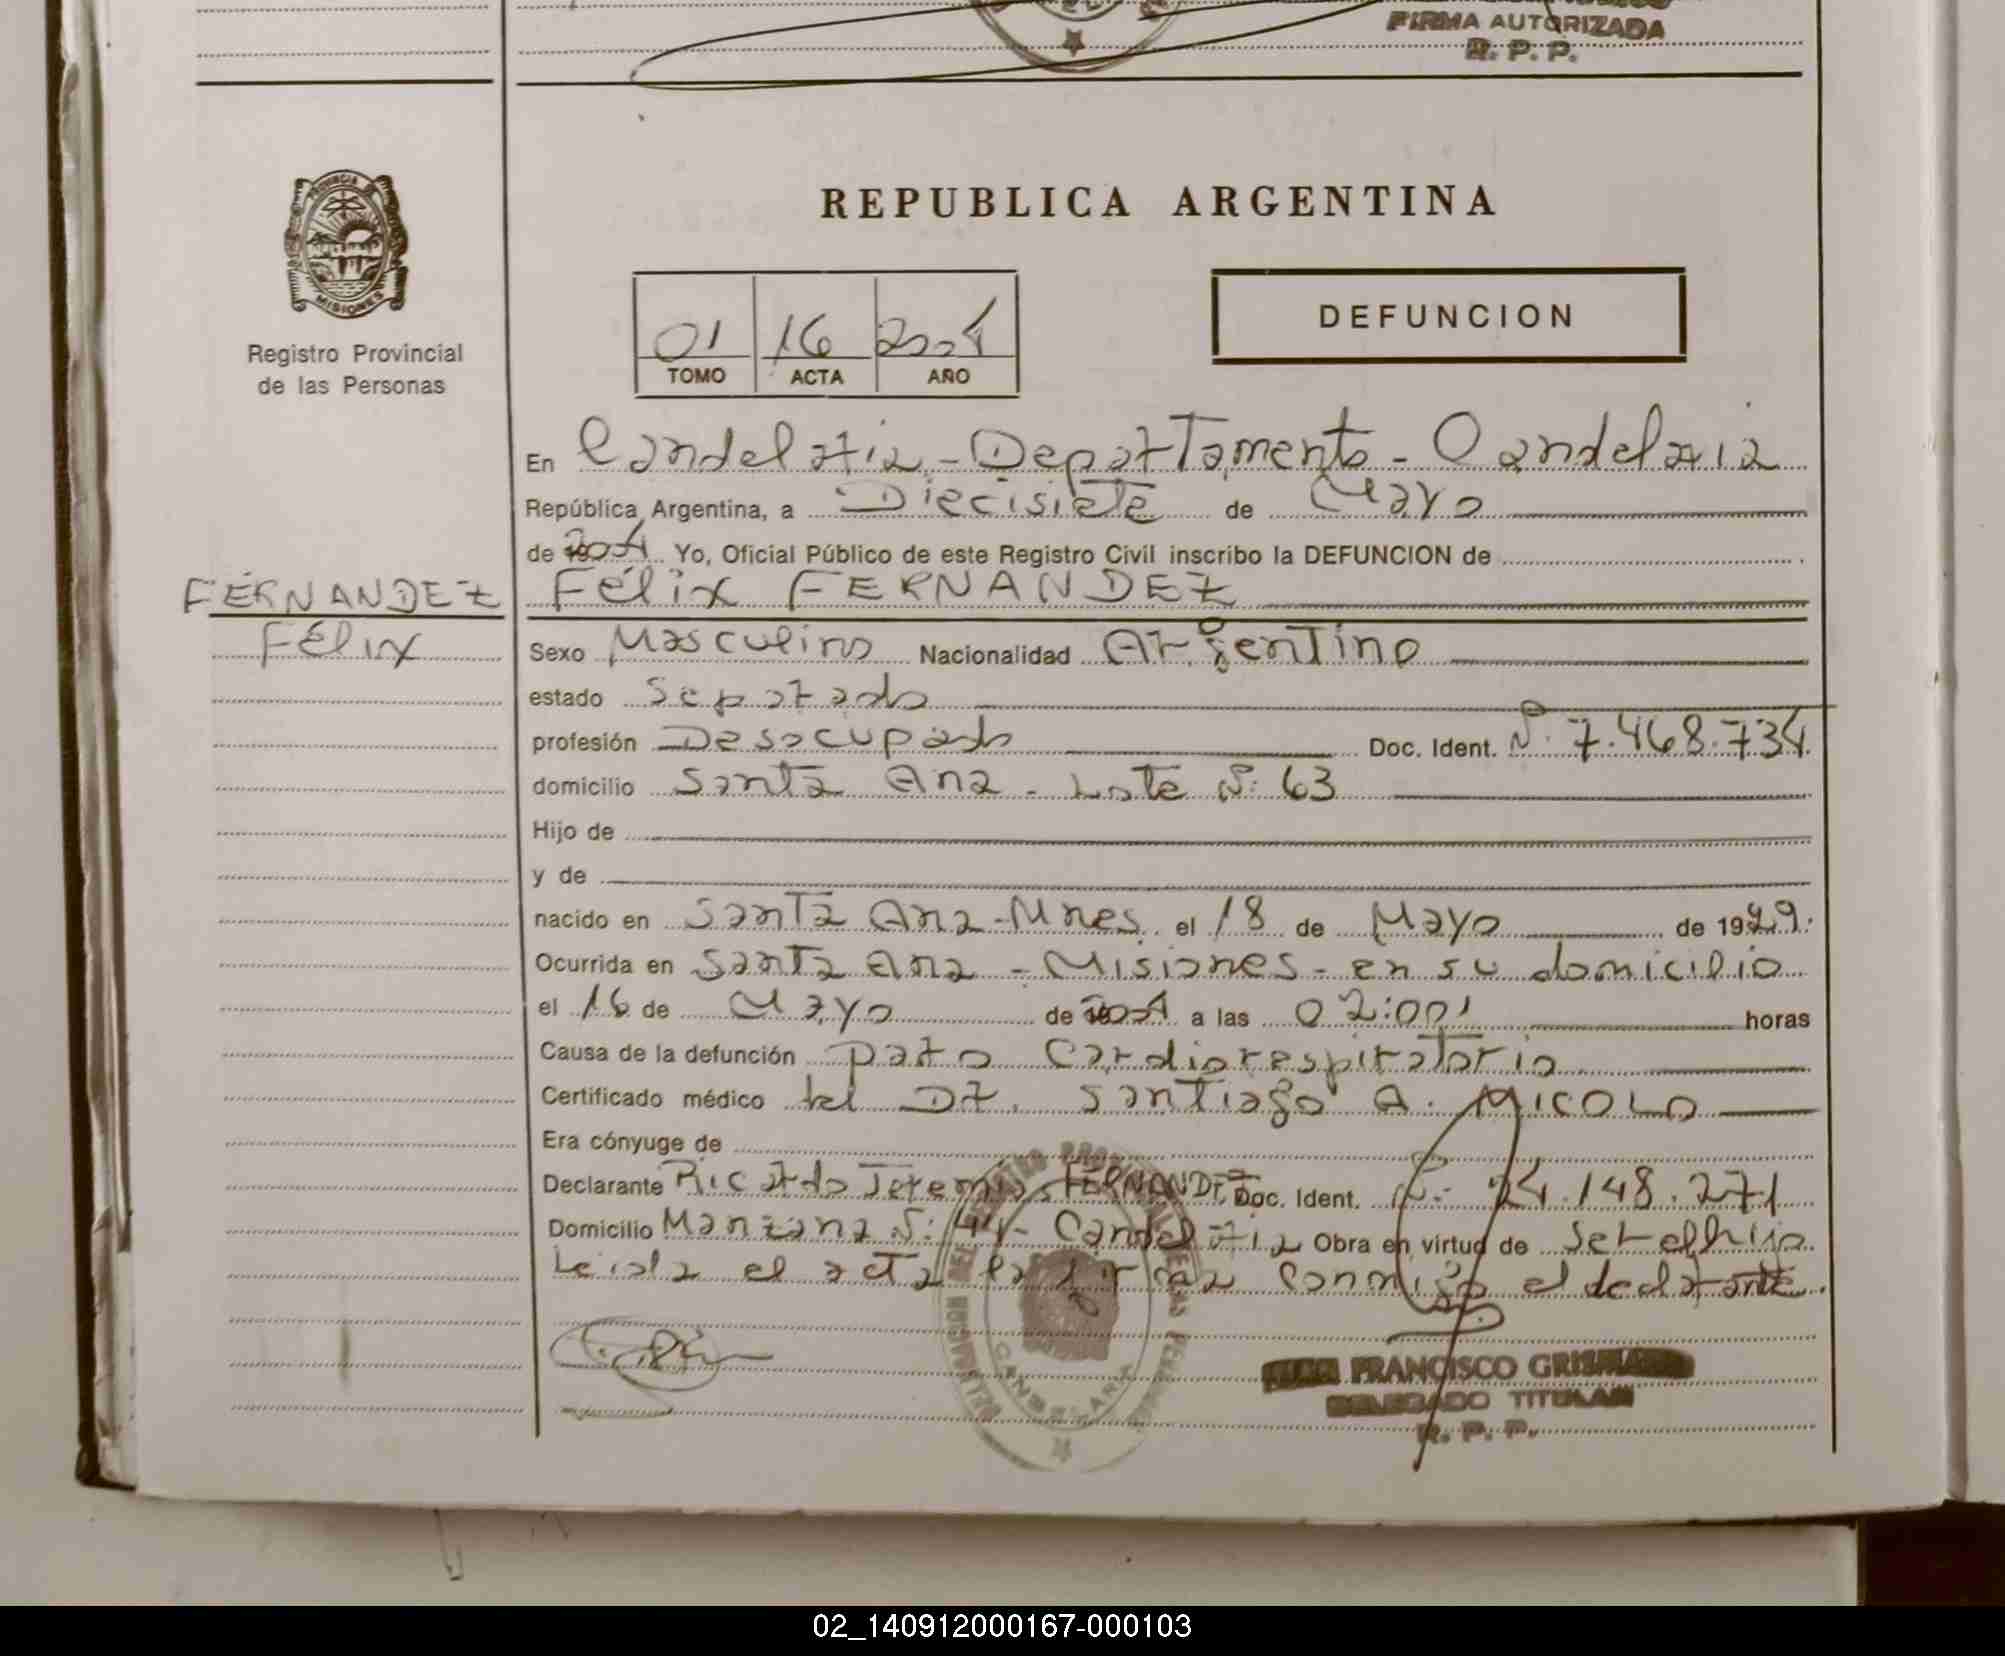 FIRMA AUTORIZADA
R. P. P.
PROVINCIA DE
MISIONES
Registro Provincial
de las Personas
REPUBLICA ARGENTINA
01 16 2004
TOMO ACTA AÑO
DEFUNCION
En Candelaria - Departamento - Candelaria
República Argentina, a Diecisiete de Mayo
de 2004 Yo, Oficial Público de este Registro Civil inscribo la DEFUNCION de
FERNANDEZ
Félix FERNANDEZ
Félix
Sexo Masculino Nacionalidad Argentino
estado Separado
profesión Desocupado Doc. Ident. Nº 7.468.734
domicilio Santa Ana - Lote Nº 63
Hijo de
y de
nacido en Santa Ana - Mnes. el 18 de Mayo de 1929.
Ocurrida en Santa Ana - Misiones - en su domicilio
el 16 de Mayo de 2004 a las 02:00' horas
Causa de la defunción paro Cardiorespiratorio
Certificado médico del Dr. Santiago A. MICOLO
Era cónyuge de
Declarante Ricardo Jeremias FERNANDEZ Doc. Ident. Nº 24.148.271
Domicilio Manzana Nº 44 - Candelaria Obra en virtud de Ser el hijo
Leida el acta la firma conmigo el declarante.
REGISTRO PROVINCIAL DE LAS PERSONAS
CANDELARIA
FRANCISCO
DELEGADO TITULAR
R. P. P.
02_140912000167-000103